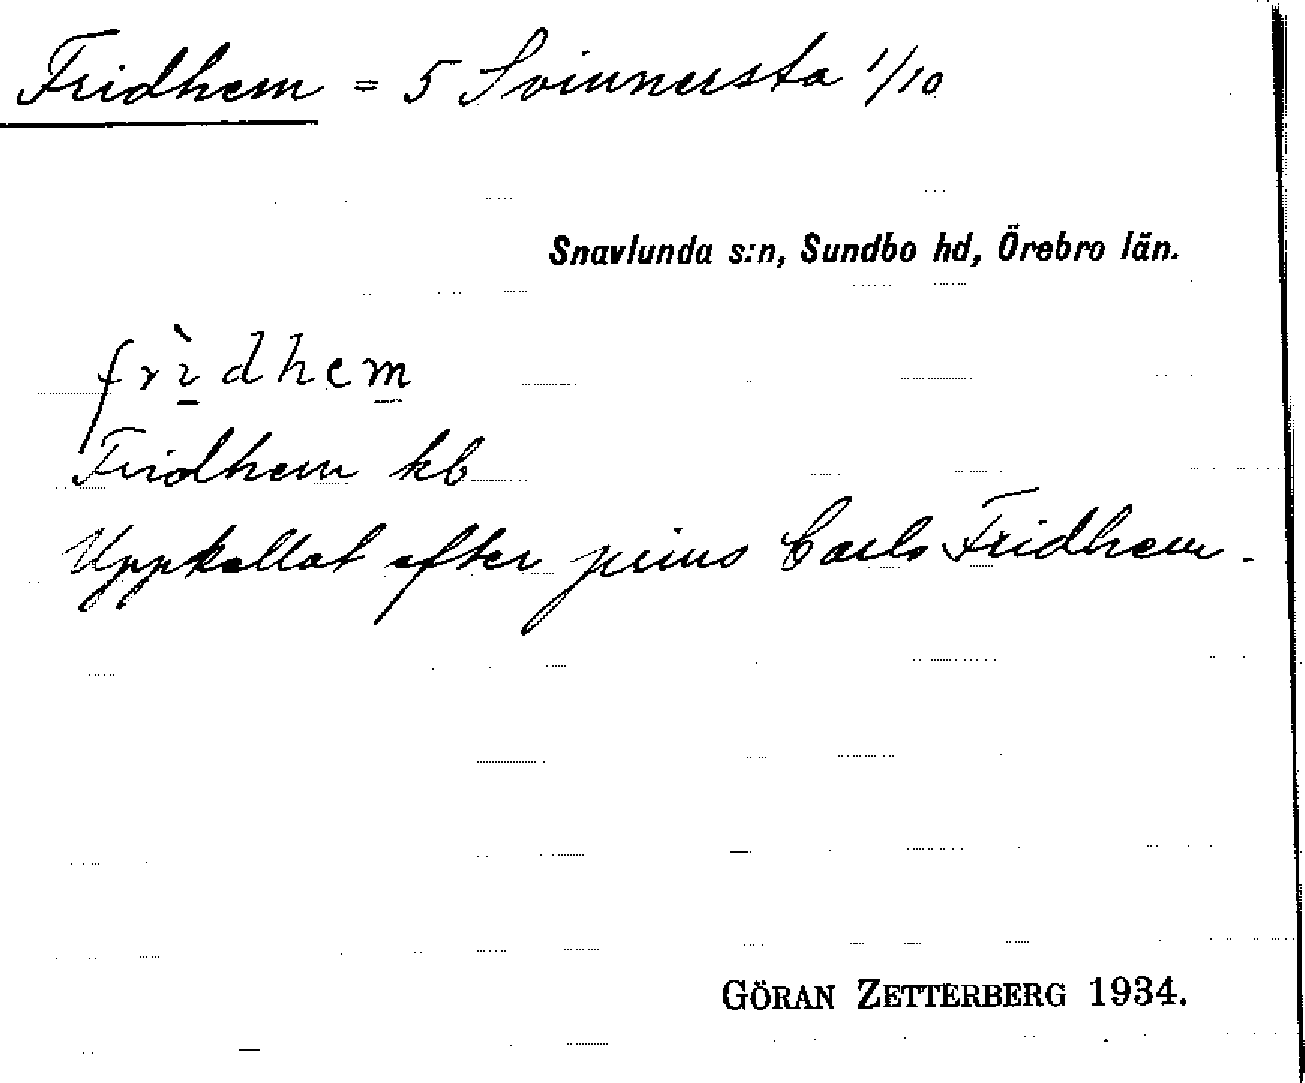 Fridhem = 5 Svinnersta 1/10
Snavlunda s:n, Sundbo hd, Örebro län.
frìdhem
Fridhem kb
Uppkallat efter prins Carls Fridhem.
GÖRAN ZETTERBERG 1934.